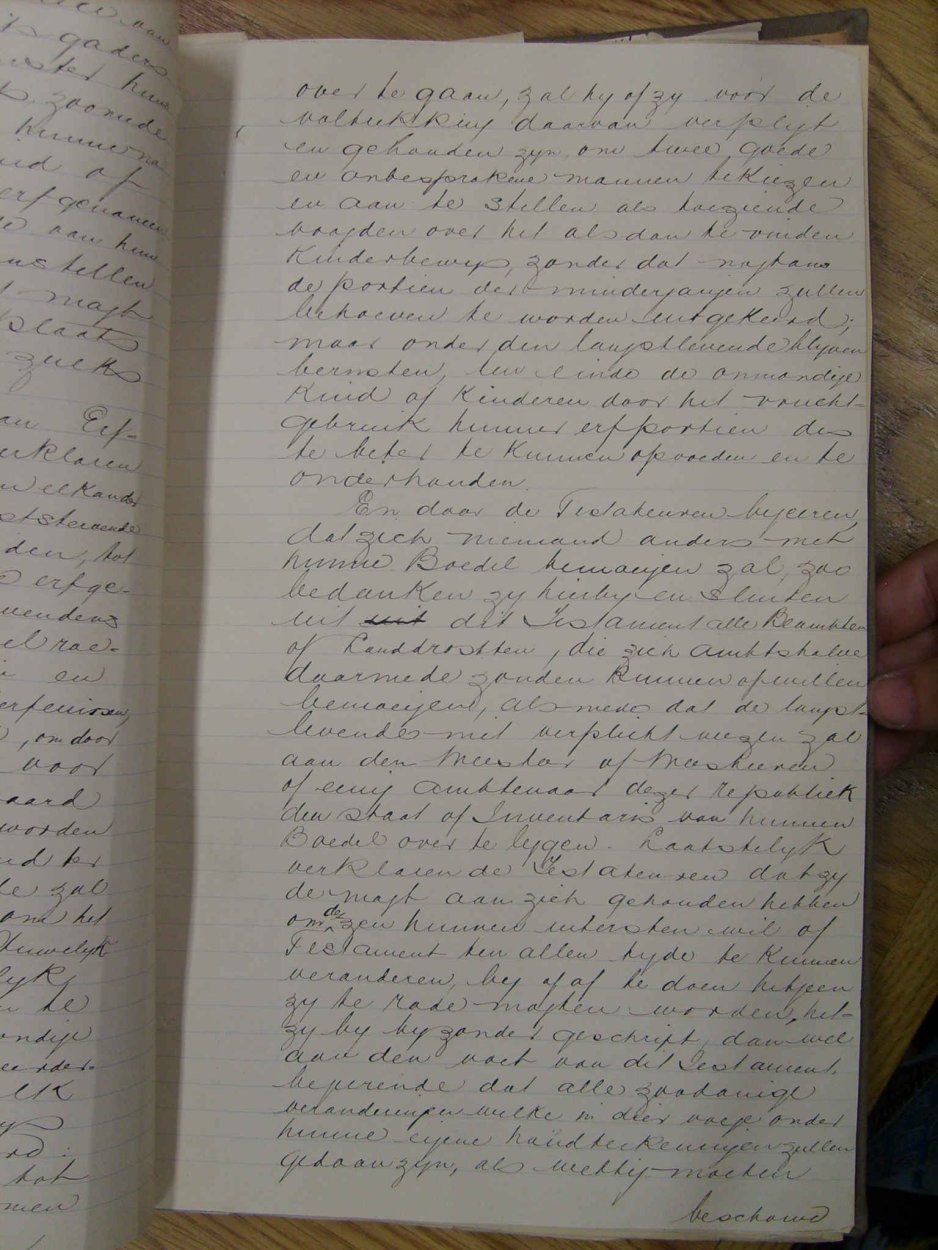 gaders
zoomede
of
erfgenamen
van hun
stellen
magt
plaats
zulks
Erf-
verklaren
elkander
den, tot
erfge-
en
, om door
voor
worden
zal
om het
Huwelyk
te
tot
over te gaan, zal hy of zy voor de
voltrekking daarvan verplgt
en gehouden zyn om twee goede
en onbesprokene mannen te kiezen
en aan te stellen als toeziende
voogden over het als dan te vinden
Kinderbewys, zonder dat nogtans
de portien der minderjarigen zullen
behoeven te worden uitgekeerd;
maar onder den langstlevende blyven
berusten, ten einde de onmondige
Kind of Kinderen door het vrucht-
gebruik hunner erfportien des
te beter te Kunnen opvoeden en te
onderhouden.
En daar de Testateuren begeeren
dat zich niemand anders met
hunne Boedel bemoeijen zal, zoo
bedanken zy hierby en sluiten
uit uit dit Testament alle Beambten
of Landdrosten, die zich ambtshalve
daarmede zouden Kunnen of willen
bemoeijen, als mede dat de langst-
levende niet verplicht wezen zal
aan den Meester of Meesteren
of eenig ambtenaar dezer republiek
den staat of Inventaris van hunnen
Boedel over te leggen. Laatstelyk
verklaren de Testateuren dat zy
de magt aan zich gehouden hebben
om dezen hunnen uitersten wil of
Testament ten allen tyde te Kunnen
veranderen, by of af te doen hetgeen
zy te rade mogten worden, het-
zy by byzonder geschrift, dan wel
aan den voet van dit Testament
begeerende dat alle zoodanige
veranderingen welke in dier voege onder
hunne eigene handteekeningen zullen
gedaan zyn, als wettig moeten
beschouwd